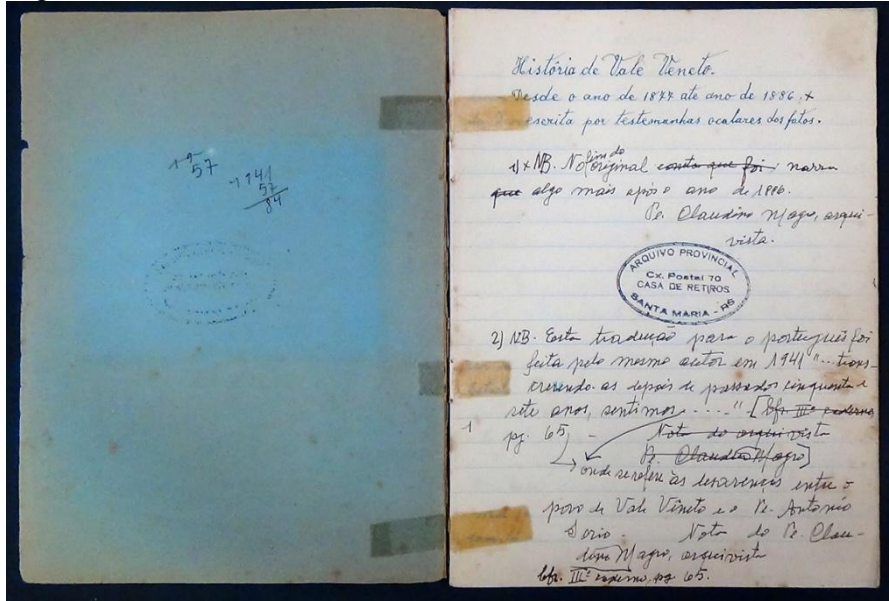 19
57
1941
57
84
História de Vale Veneto.
Desde o ano de 1877 até ano de 1886 +
escrita por testemunhas oculares dos fatos.
1) + NB. No fim do original conta que foi narra
que algo mais após o ano de 1886.
Pe. Claudino Magro, arqui-
vista.
ARQUIVO PROVINCIAL
Cx. Postal 70
CASA DE RETIROS
SANTA MARIA - RS
2) NB. Esta tradução para o português foi
feita pelo mesmo autor em 1941 "... trans-
crevendo-as depois de passados cinquenta e
sete anos, sentimos ....." [Cfr. IIIº caderno
pg. 65, - Nota do arquivista
1
Pe. Claudino Magro]
onde se refere às desavenças entre o
povo de Vale Vêneto e o Pe. Antonio
Sorio. Nota do Pe. Clau-
dino Magro, arquivista
Cfr. IIIº caderno, pg. 65.